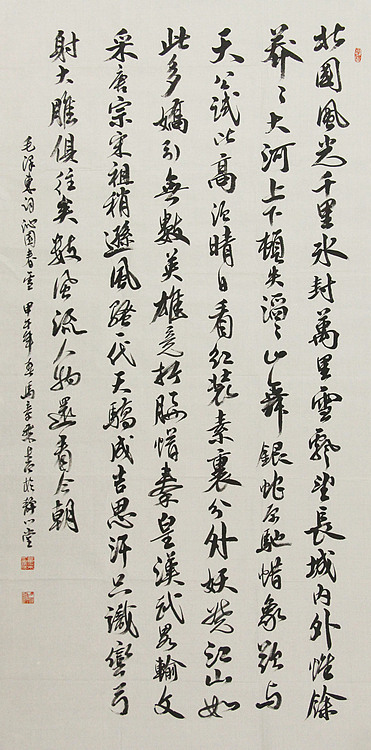 北國風光千里冰封萬里雪飄望長城内外惟餘
莽〻大河上下頓失滔〻山舞銀蛇原馳蜡象欲与
天公試比高須晴日看紅裝素裹分外妖嬈江山如
此多嬌引無數英雄竟折腰惜秦皇漢武畧輸文
采唐宗宋祖稍遜風騷一代天驕成吉思汗只識彎弓
射大雕俱往矣數風流人物還看今朝
毛澤東詞沁園春雪 甲午年馬於静心堂